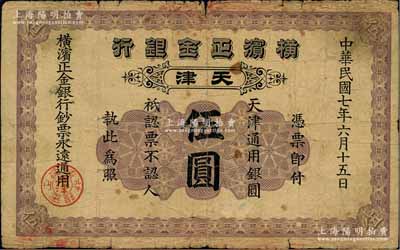 上海陽明拍賣
行銀金正濱橫
津天
中華民國七年六月十五日
憑票即付
天津通用銀圓
伍圓
祇認票不認人
執此為照
橫濱正金銀行鈔票永遠通用
上海陽明拍賣